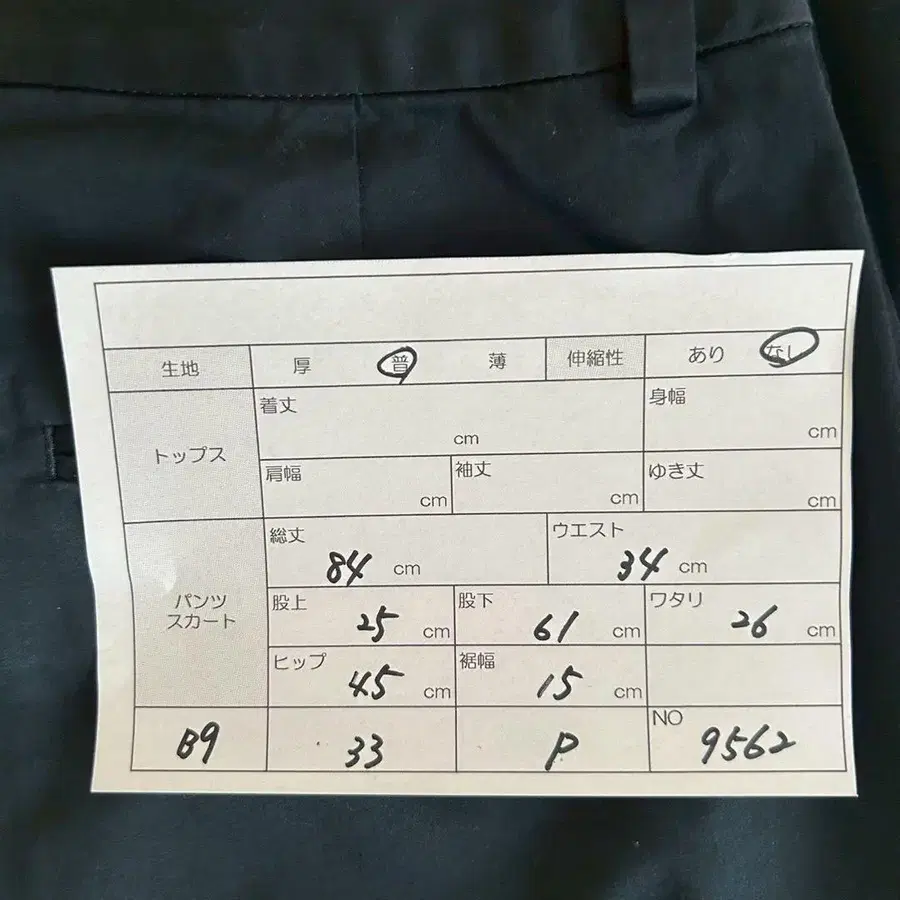 生地 厚 普 薄 伸縮性 あり なし
トップス
着丈 cm 身幅 cm
肩幅 cm 袖丈 cm ゆき丈 cm
パンツ
スカート
総丈 84 cm ウエスト 34 cm
股上 25 cm 股下 61 cm ワタリ 26 cm
ヒップ 45 cm 裾幅 15 cm
B9 33 P NO 9562